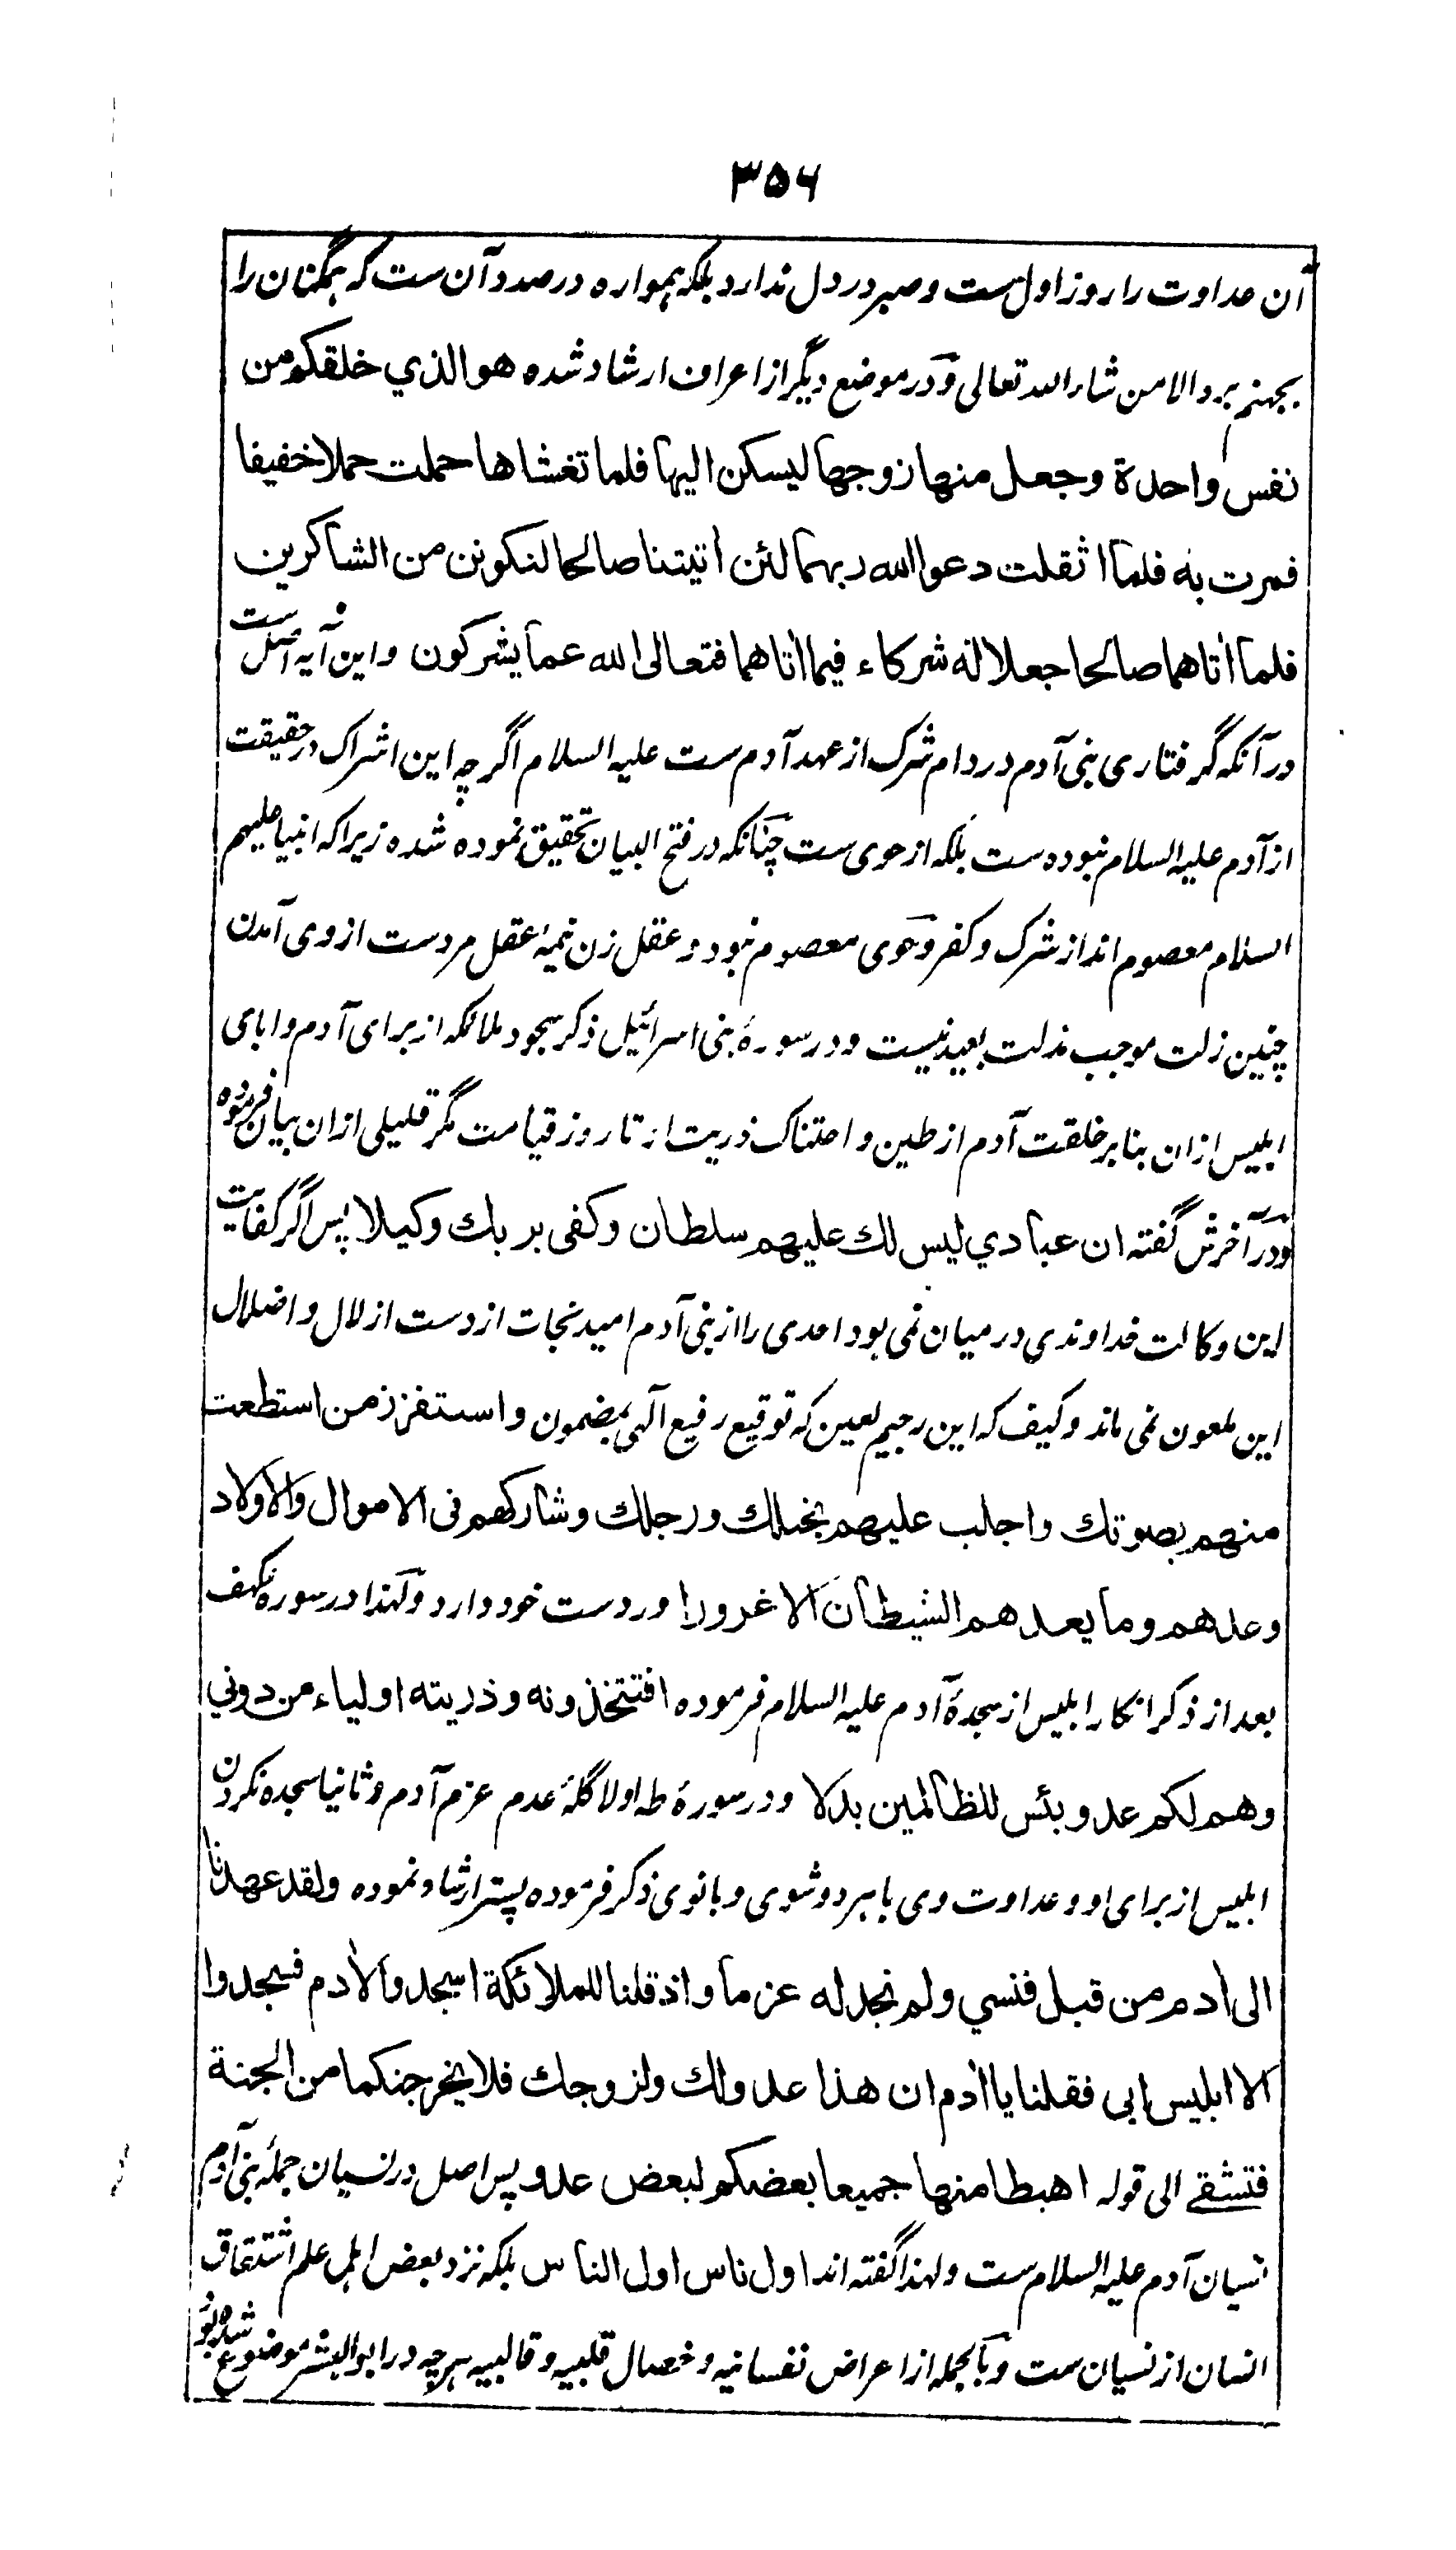 ۳۵۶
آن عداوت را روز اول ست و صبر در دل ندارد بلکه همواره در صدد آن ست که همگنان را
بجهنم برد الا من شاء الله تعالی و در موضع دیگر از اعراف ارشاد شده هو الذي خلقكم من
نفس واحدة وجعل منها زوجها ليسكن اليها فلما تغشاها حملت حملا خفيفا
فمرت به فلما اثقلت دعوا الله ربهما لئن اتيتنا صالحا لنكونن من الشاكرين
فلما اتاهما صالحا جعلا له شركاء فيما اتاهما فتعالى الله عما يشركون و این آیه اصل ست
در آنکه گرفتاری بنی آدم در دام شرک از عهد آدم ست علیه السلام اگرچه این اشراک در حقیقت
از آدم علیه السلام نبوده ست بلکه از حوی ست چنانکه در فتح البیان تحقیق نموده شده زیرا که انبیا علیهم
السلام معصوم اند از شرک و کفر و حوی معصوم نبود و عقل زن نیمهٔ عقل مرد ست از وی آمدن
چنین زلت موجب مذلت بعید نیست و در سورهٔ بنی اسرائیل ذکر سجود ملائکه از برای آدم و ابای
ابلیس ازان بنا بر خلقت آدم از طین و احتناک ذریت او تا روز قیامت مگر قلیلی ازان بیان فرموده
و در آخرش گفته ان عبادي ليس لك عليهم سلطان وكفى بربك وكيلا پس اگر کفایت
این وکالت خداوندی در میان نمی بود احدی را از بنی آدم امید نجات از دست ازلال و اضلال
این ملعون نمی ماند و کیف که این رجیم لعین که توقیع رفیع آلهی بمضمون واستفزز من استطعت
منهم بصوتك واجلب عليهم بخيلك ورجلك وشاركهم فی الاموال والاولاد
وعدهم وما يعدهم الشيطان الا غرورا در دست خود دارد و لهذا در سورهٔ کهف
بعد از ذکر انکار ابلیس از سجدهٔ آدم علیه السلام فرموده افتتخذونه وذريته اولياء من دوني
وهم لكم عدو بئس للظالمين بدلا و در سورهٔ طه اولا گلهٔ عدم عزم آدم و ثانیا سجده نکردن
ابلیس از برای او و عداوت وی با هر دو شوی و بانوی ذکر فرموده پستر ارشاد نموده ولقد عهدنا
الى ادم من قبل فنسي ولم نجد له عزما واذ قلنا للملائكة اسجدوا لادم فسجدوا
الا ابليس ابى فقلنا يا ادم ان هذا عدو لك ولزوجك فلا يخرجنكما من الجنة
فتشقے الی قوله اهبطا منها جميعا بعضكم لبعض عدو پس اصل در نسیان جملهٔ بنی آدم
نسیان آدم علیه السلام ست و لهذا گفته اند اول ناس اول الناس بلکه نزد بعض اهل علم اشتقاق
انسان از نسیان ست و بالجمله از اعراض نفسانیه و خصال قلبیه و قالبیه هرچه در ابو البشر موضوع شده بود